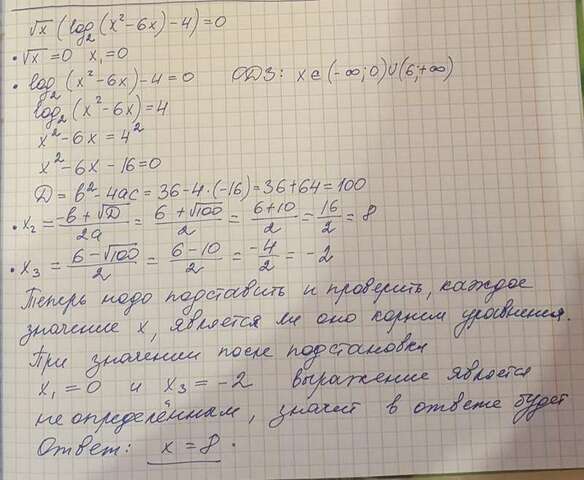 √x (log₂(x²-6x)-4)=0
• √x=0 x₁=0
• log₂(x²-6x)-4=0 ОДЗ: x∈(-∞;0)∪(6;+∞)
log₂(x²-6x)=4
x²-6x=4²
x²-6x-16=0
D=b²-4ac=36-4·(-16)=36+64=100
• x₂=(-b+√D)/2a=(6+√100)/2=(6+10)/2=16/2=8
• x₃=(6-√100)/2=(6-10)/2=-4/2=-2
Теперь надо подставить и проверить, каждое
значение x, является ли оно корнем уравнения.
При значении после подстановки
x₁=0 и x₃=-2 выражение является
неопределённым, значит в ответе будет
Ответ: x=8.